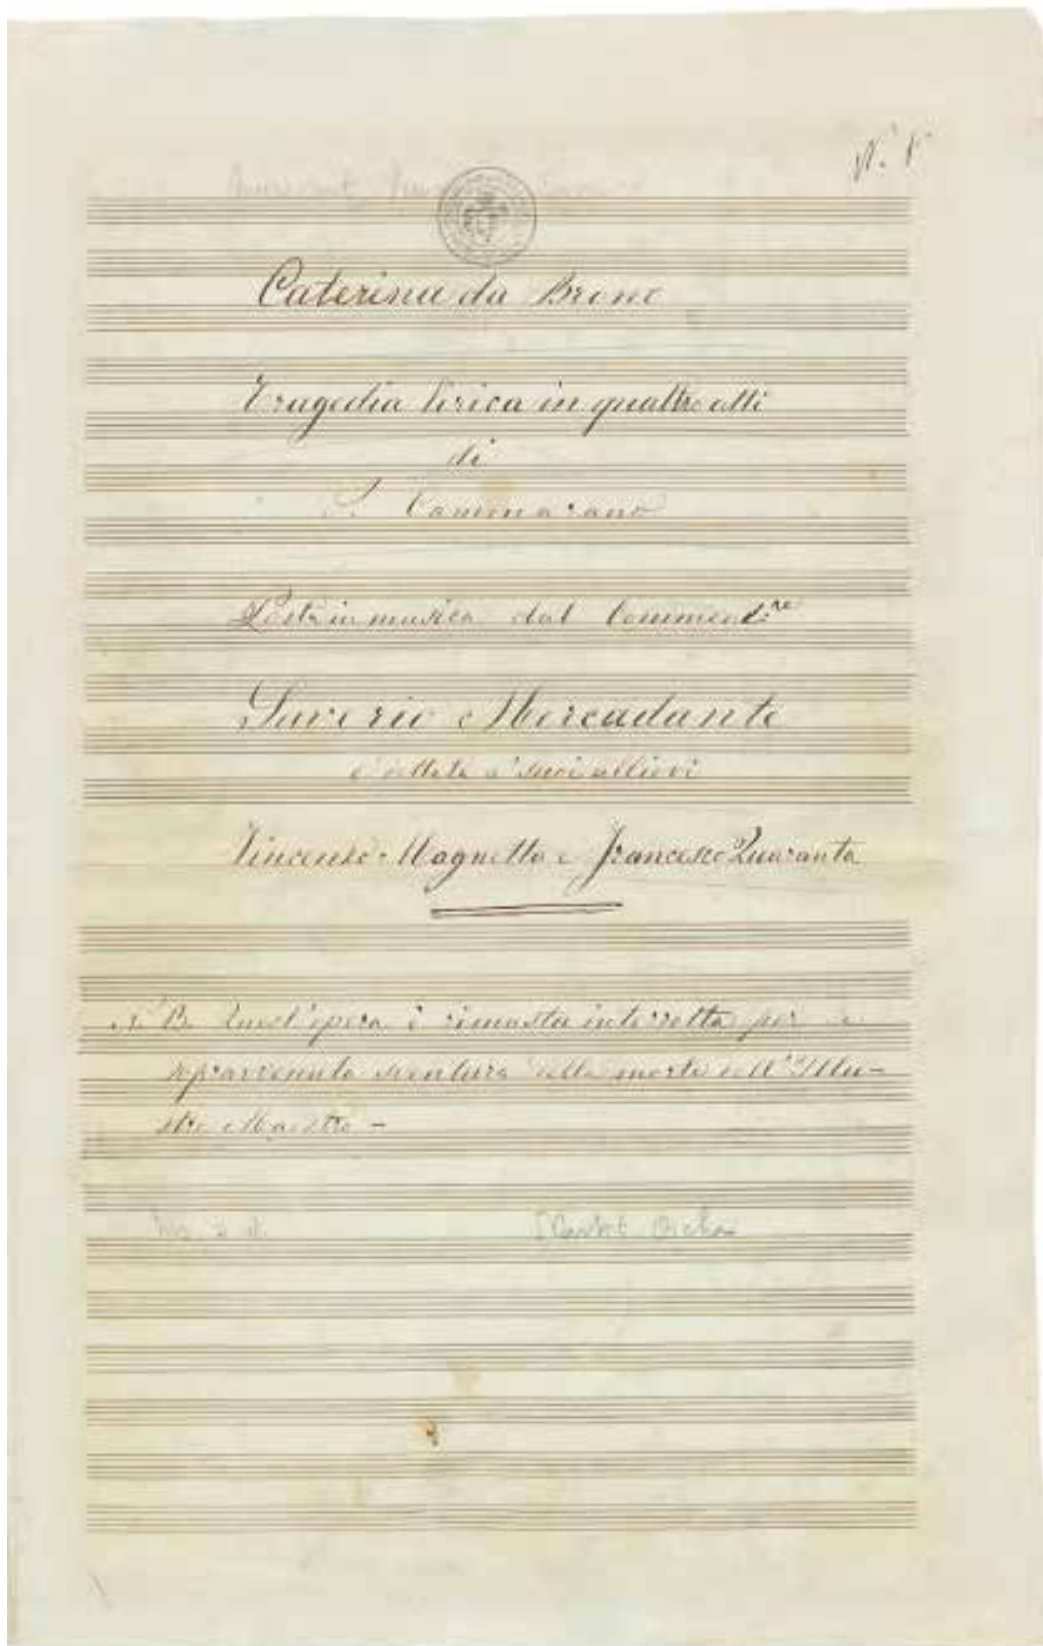 N. 1°
Caterina da Brono
Tragedia lirica in quattro atti
di
S. Cammarano
Posta in musica dal Commend.re
Saverio Mercadante
e dettata a' suoi allievi
Vincenzo Magnetta e Francesco Quaranta
N. B. Quest'opera è rimasta interrotta per la
sopravvenuta sventura della morte dell'Illu-
stre Maestro -